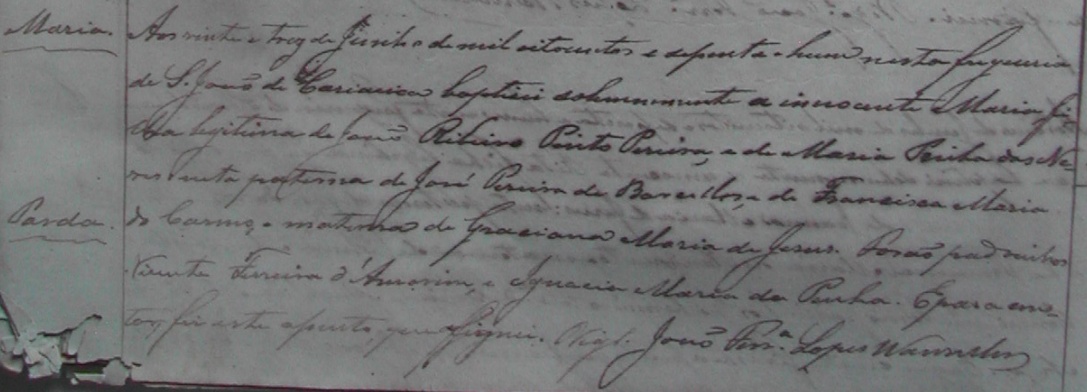 Maria. Aos vinte e trez de Junho de mil oitocentos e setenta e hum nesta freguezia
de S. João de Cariacica baptizei solemnemente a innocente Maria fi-
lha legitima de João Ribeiro Pinto Pereira, e de Maria Penha das Ne-
ves neta paterna de José Pereira de Barcellos, e de Francisca Maria
Parda. do Carmo, e materna de Graciana Maria de Jesus. Forão padrinhos
Vicente Ferreira d'Amorim, e Ignacia Maria da Penha. E para cons-
tar, fiz este assento, que assignei. Vigº. João Ferrª Lopes Wanzeller